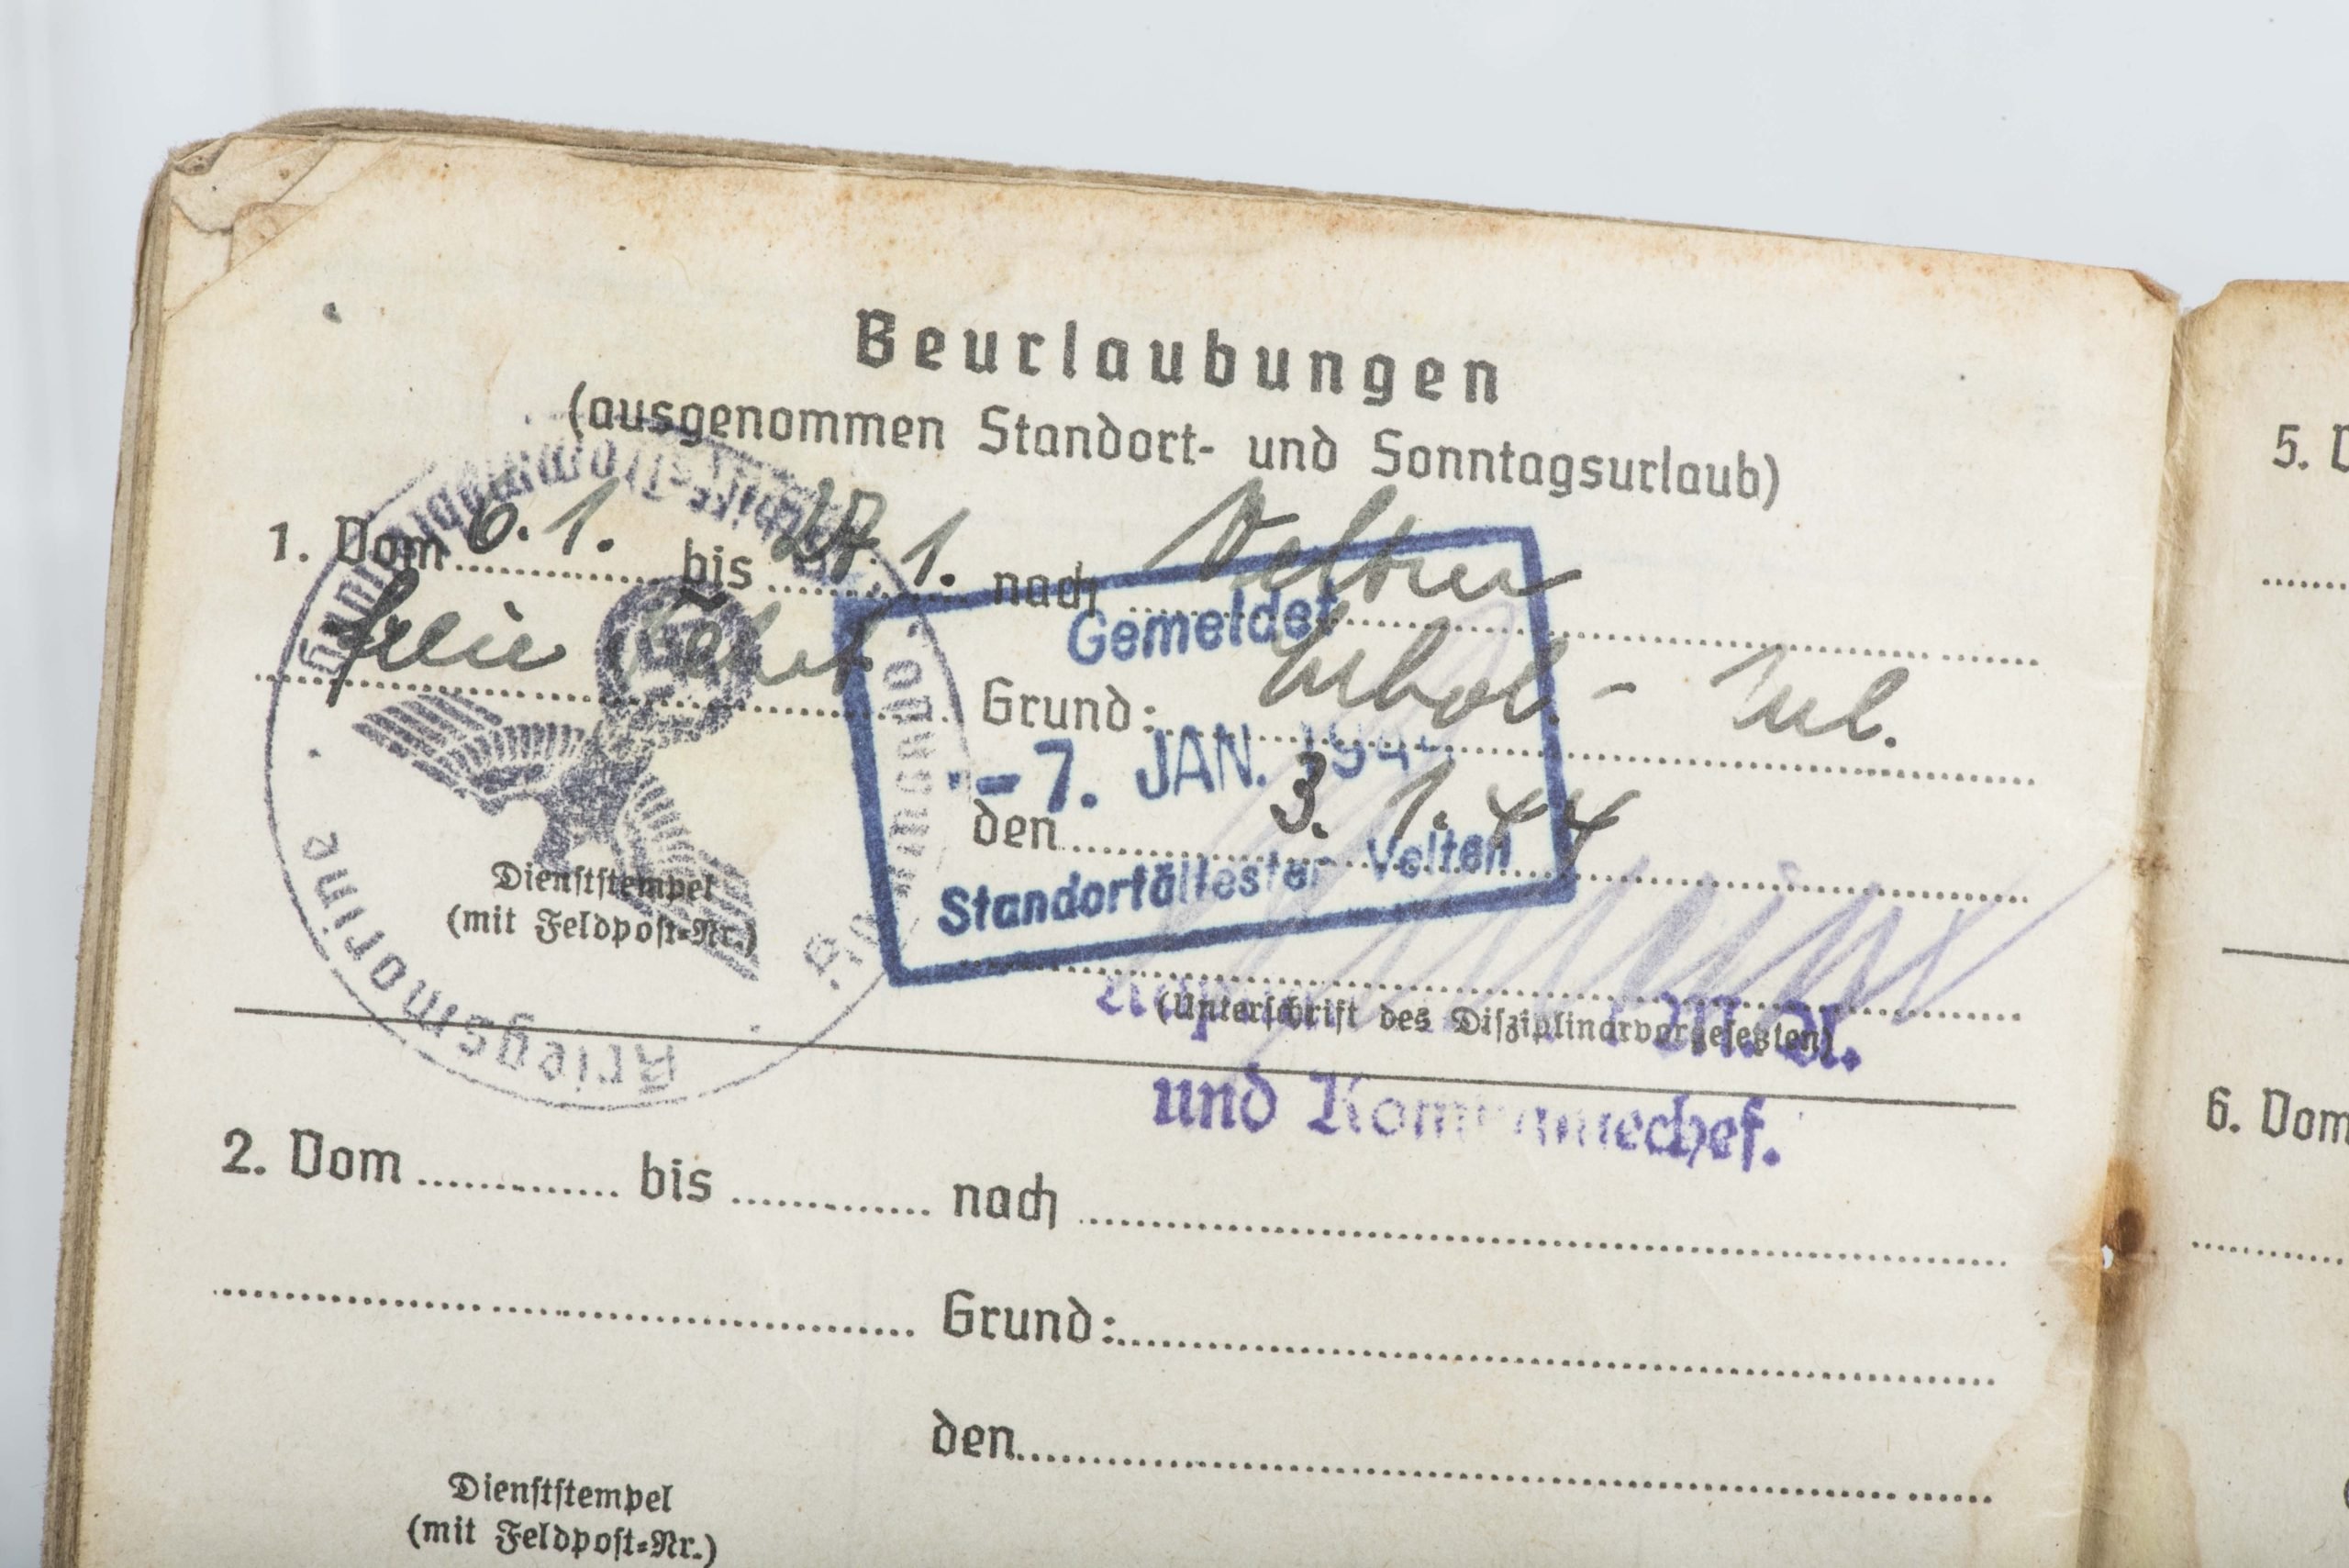 Beurlaubungen
(ausgenommen Standort- und Sonntagsurlaub)
1. Vom 6.1. bis 27.1. nach Velten
freie Fahrt
Gemeldet
Grund: Erhol. - Url.
-7. JAN. 194
den 3. 1. 44
Standortältester Velten
Dienststempel
(mit Feldpost-Nr.)
Kriegsmarine
(Unterschrift des Disziplinarvorgesetzten)
M. A.
und Kompaniechef.
2. Vom bis nach
Grund:
den
Dienststempel
(mit Feldpost-Nr.)
5.
6. Vom